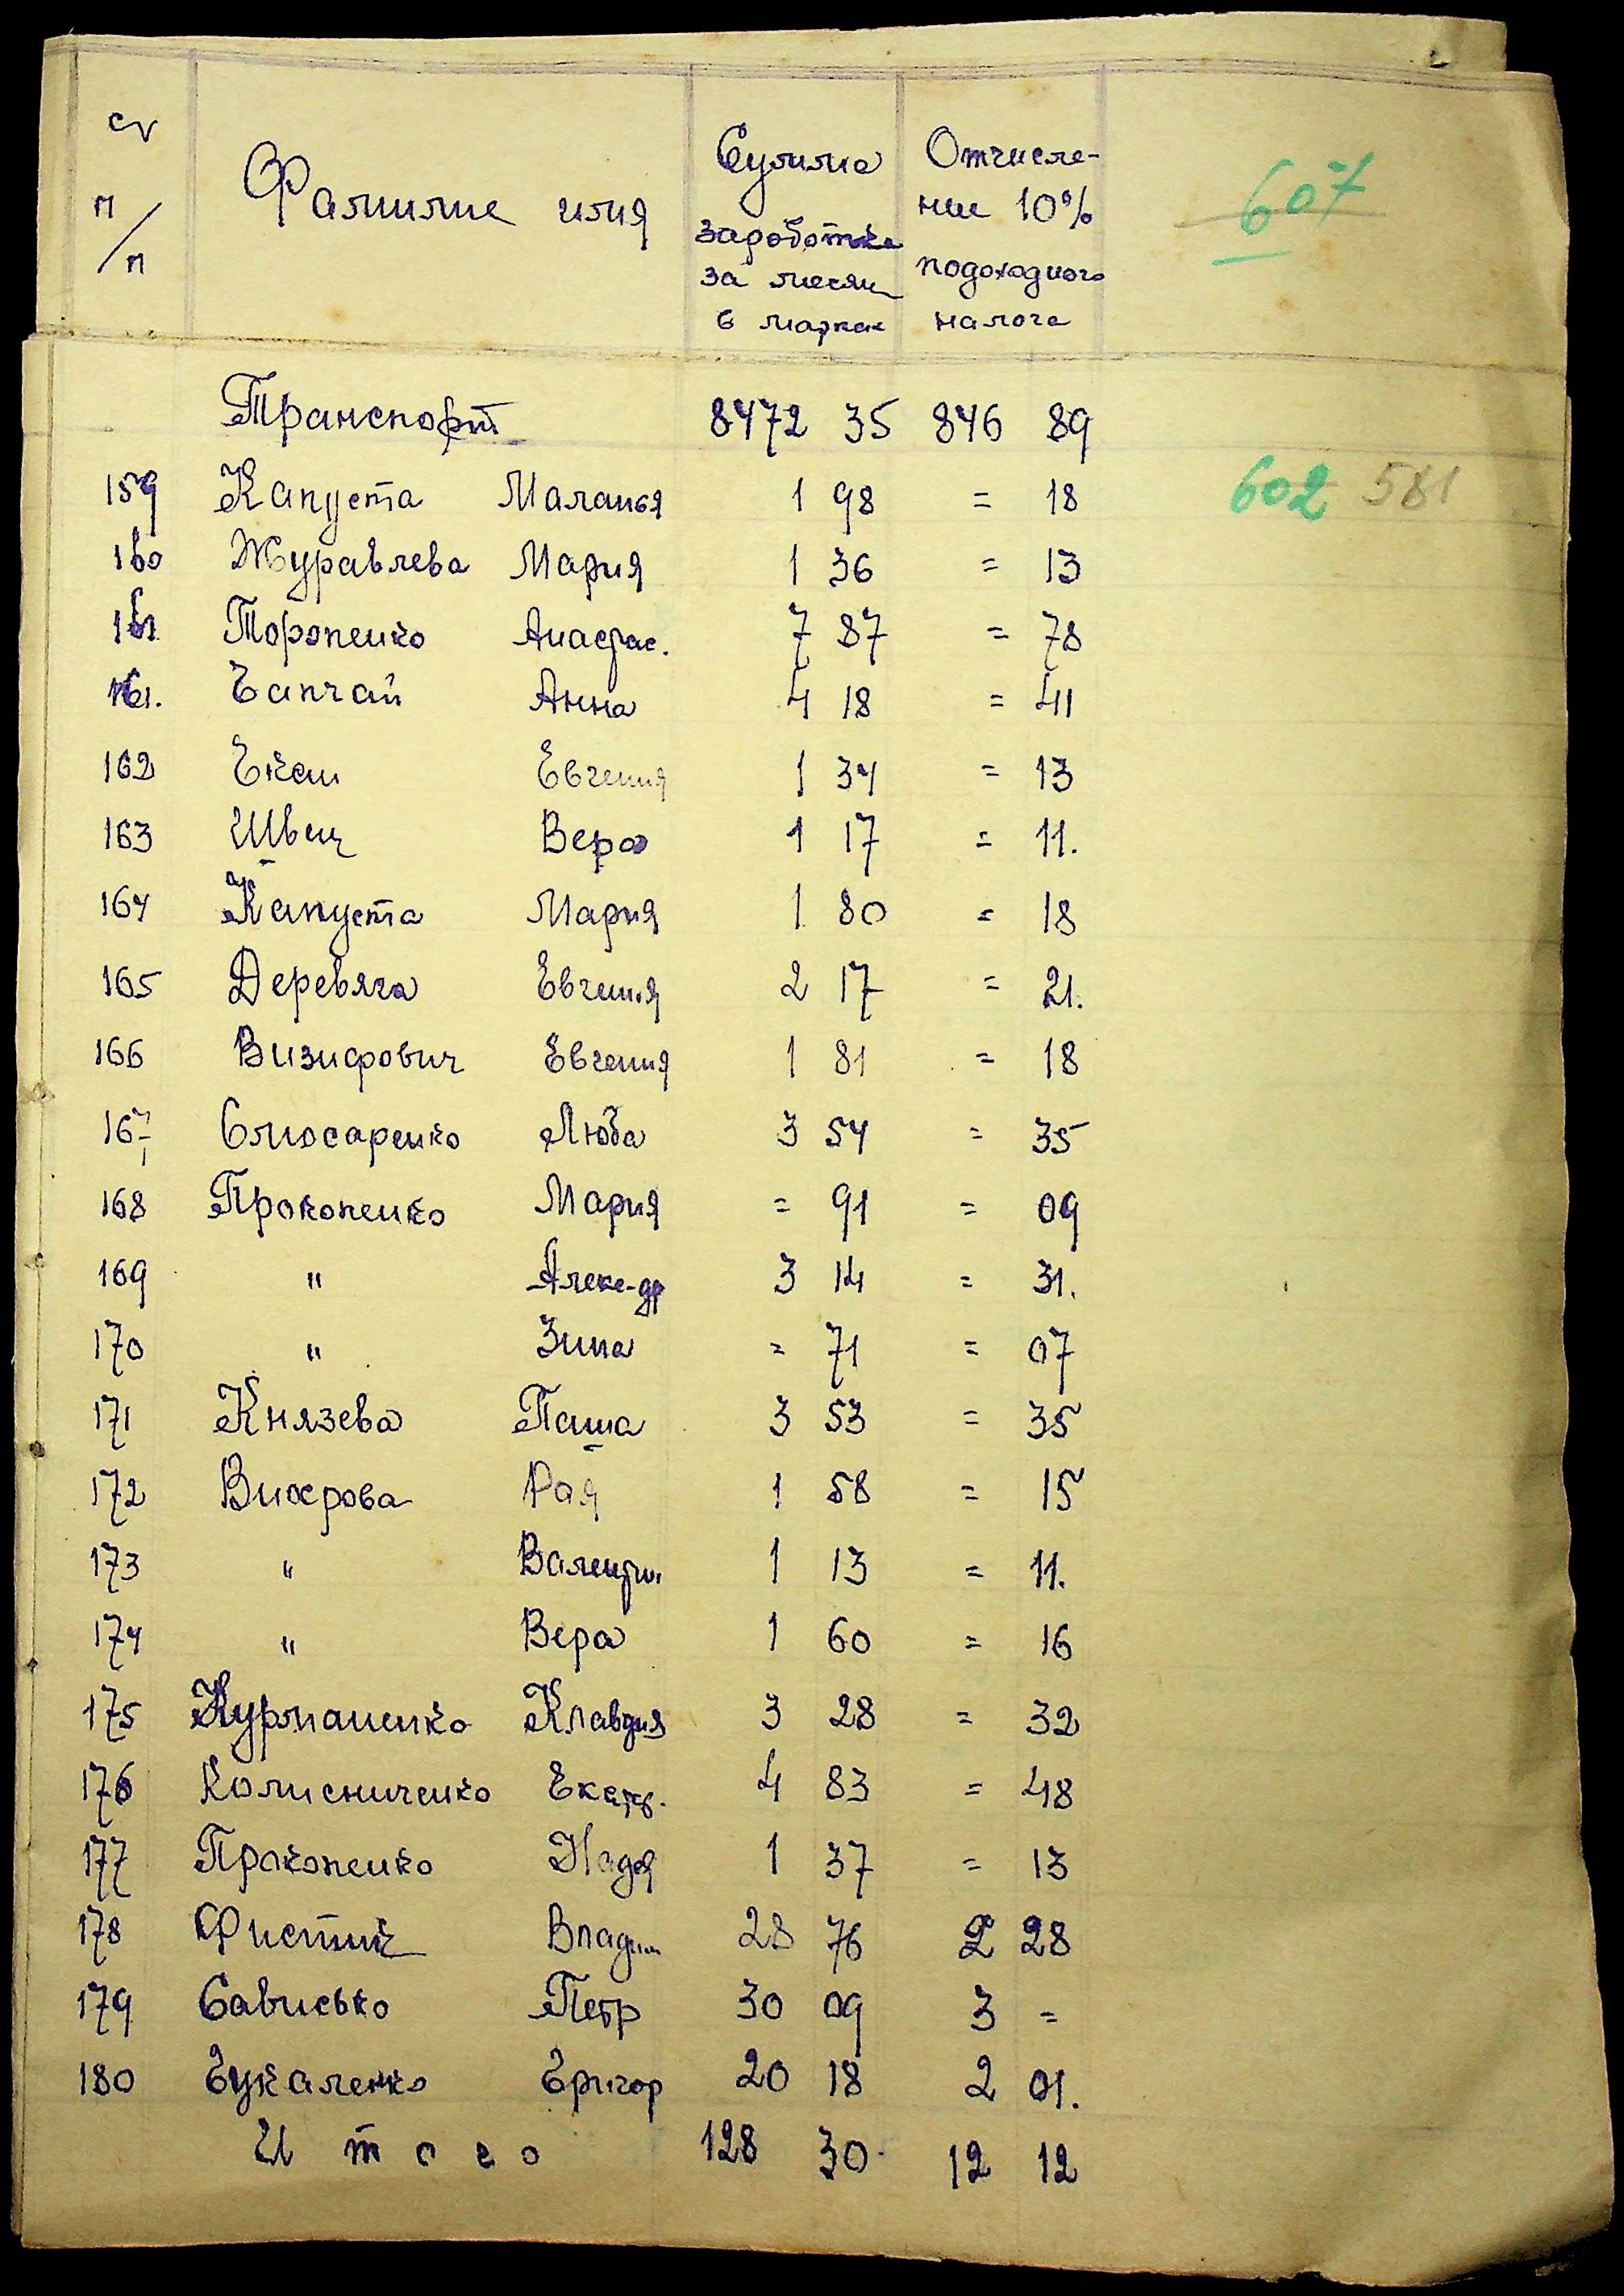 п/п Фамилие имя Сумма заработка за месяц в марках Отчисле-
ние 10% подоходного налога
607
Транспорт 8472 35 846 89
159 Капуста Маланья 1 98 = 18 602 581
160 Журавлева Мария 1 36 = 13
161 Торопенко Анастас. 7 87 = 78
161. Гапчай Анна 4 18 = 41
162 Евгения 1 34 = 13
163 Швец Вера 1 17 = 11.
164 Капуста Мария 1 80 = 18
165 Деревяга Евгения 2 17 = 21.
166 Визирович Евгения 1 81 = 18
167 Слюсаренко Люба 3 54 = 35
168 Прокопенко Мария = 91 = 09
169 " Алекс-др 3 14 = 31.
170 " Зина = 71 = 07
171 Князева Паша 3 53 = 35
172 Вихрова Рая 1 58 = 15
173 " Валентин 1 13 = 11.
174 " Вера 1 60 = 16
175 Курманенко Клавдия 3 28 = 32
176 Колисниченко Екатер. 4 83 = 48
177 Прокопенко Надя 1 37 = 13
178 Фистик Владим 28 76 2 28
179 Сависько Петр 30 09 3 =
180 Гукаленко Григор 20 18 2 01.
Итого 128 30 12 12